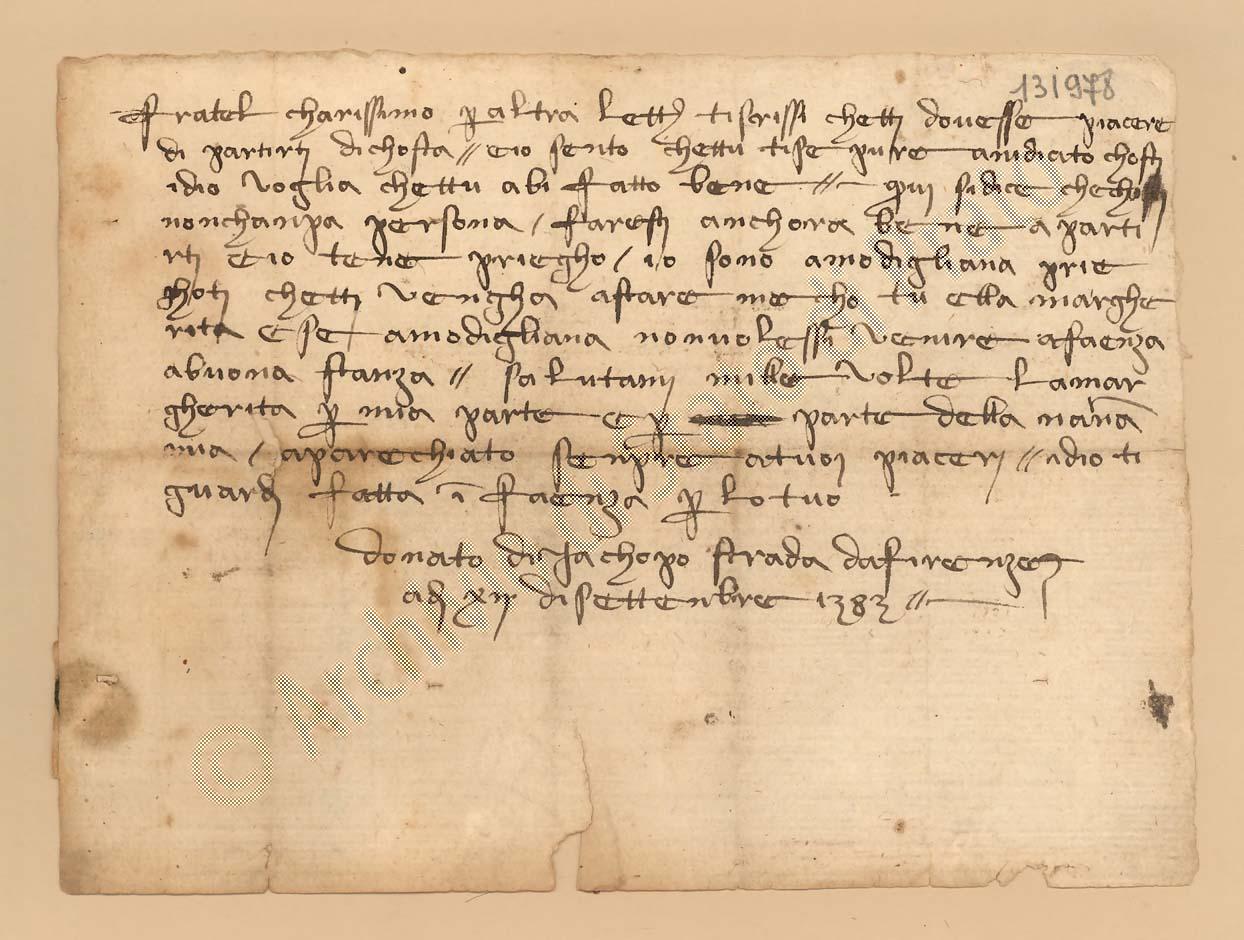 131978
Fratel charissimo p altra lett ti scrissi chetti dovesse piacere
di partirti di chosta // e io sento chettu tise pure andicato chosti
idio voglia chettu abi fatto bene // qui si dice che chosti
non champa persona / faresti anchora bene a parti
rti e io tene priegho / io sono a modigliana prie
ghoti chetti vengha a stare mecho tu e lla marghe
rita e se a modigliana non volessi venire a faenza
a buona stanza // salutami mille volte la mar
gherita p mia parte e p parte della nana
mia / aparechiato senpre a tuoi piaceri // idio ti
guardi fatta i faenza p lo tuo
donato di Jachopo strada da firenze
adi xij di settenbre 1383 //
© Archivio di Stato di Prato